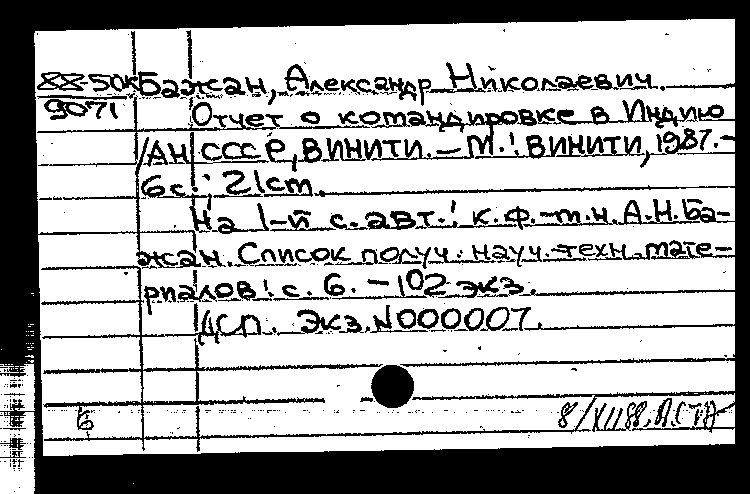 88-50к Бажан, Александр Николаевич.
9071 Отчет о командировке в Индию
/АН СССР, ВИНИТИ. — М.: ВИНИТИ, 1987. —
6 с.; 21 cm.
На 1-й с. авт.: к.ф.-м.н. А.Н. Ба-
жан. Список получ. науч.-техн. мате-
риалов: с. 6. — 102 экз.
ДСП. Экз. N000007.
Б
8/XII 88.